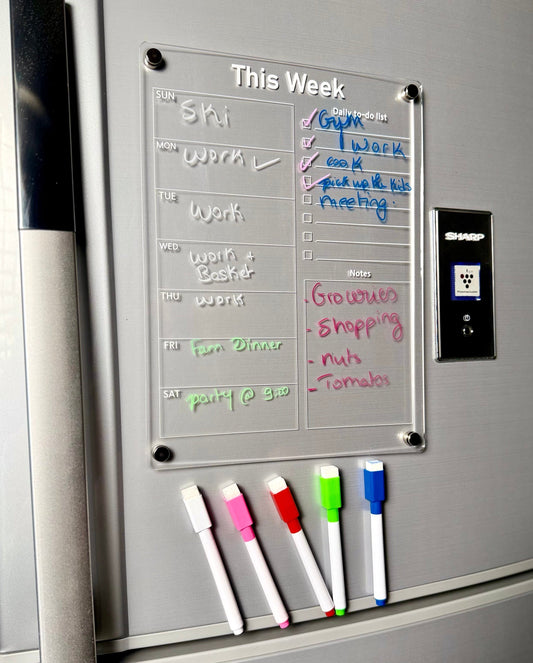 This Week
SUN
Ski
MON
Work ✓
TUE
Work
WED
Work +
Basket
THU
Work
FRI
Fam Dinner
SAT
party @ 9:00
Daily to-do list
Gym
Work
cook
pick up the kids
meeting.
Notes
- Groceries
- Shopping
- nuts
- Tomatos
SHARP